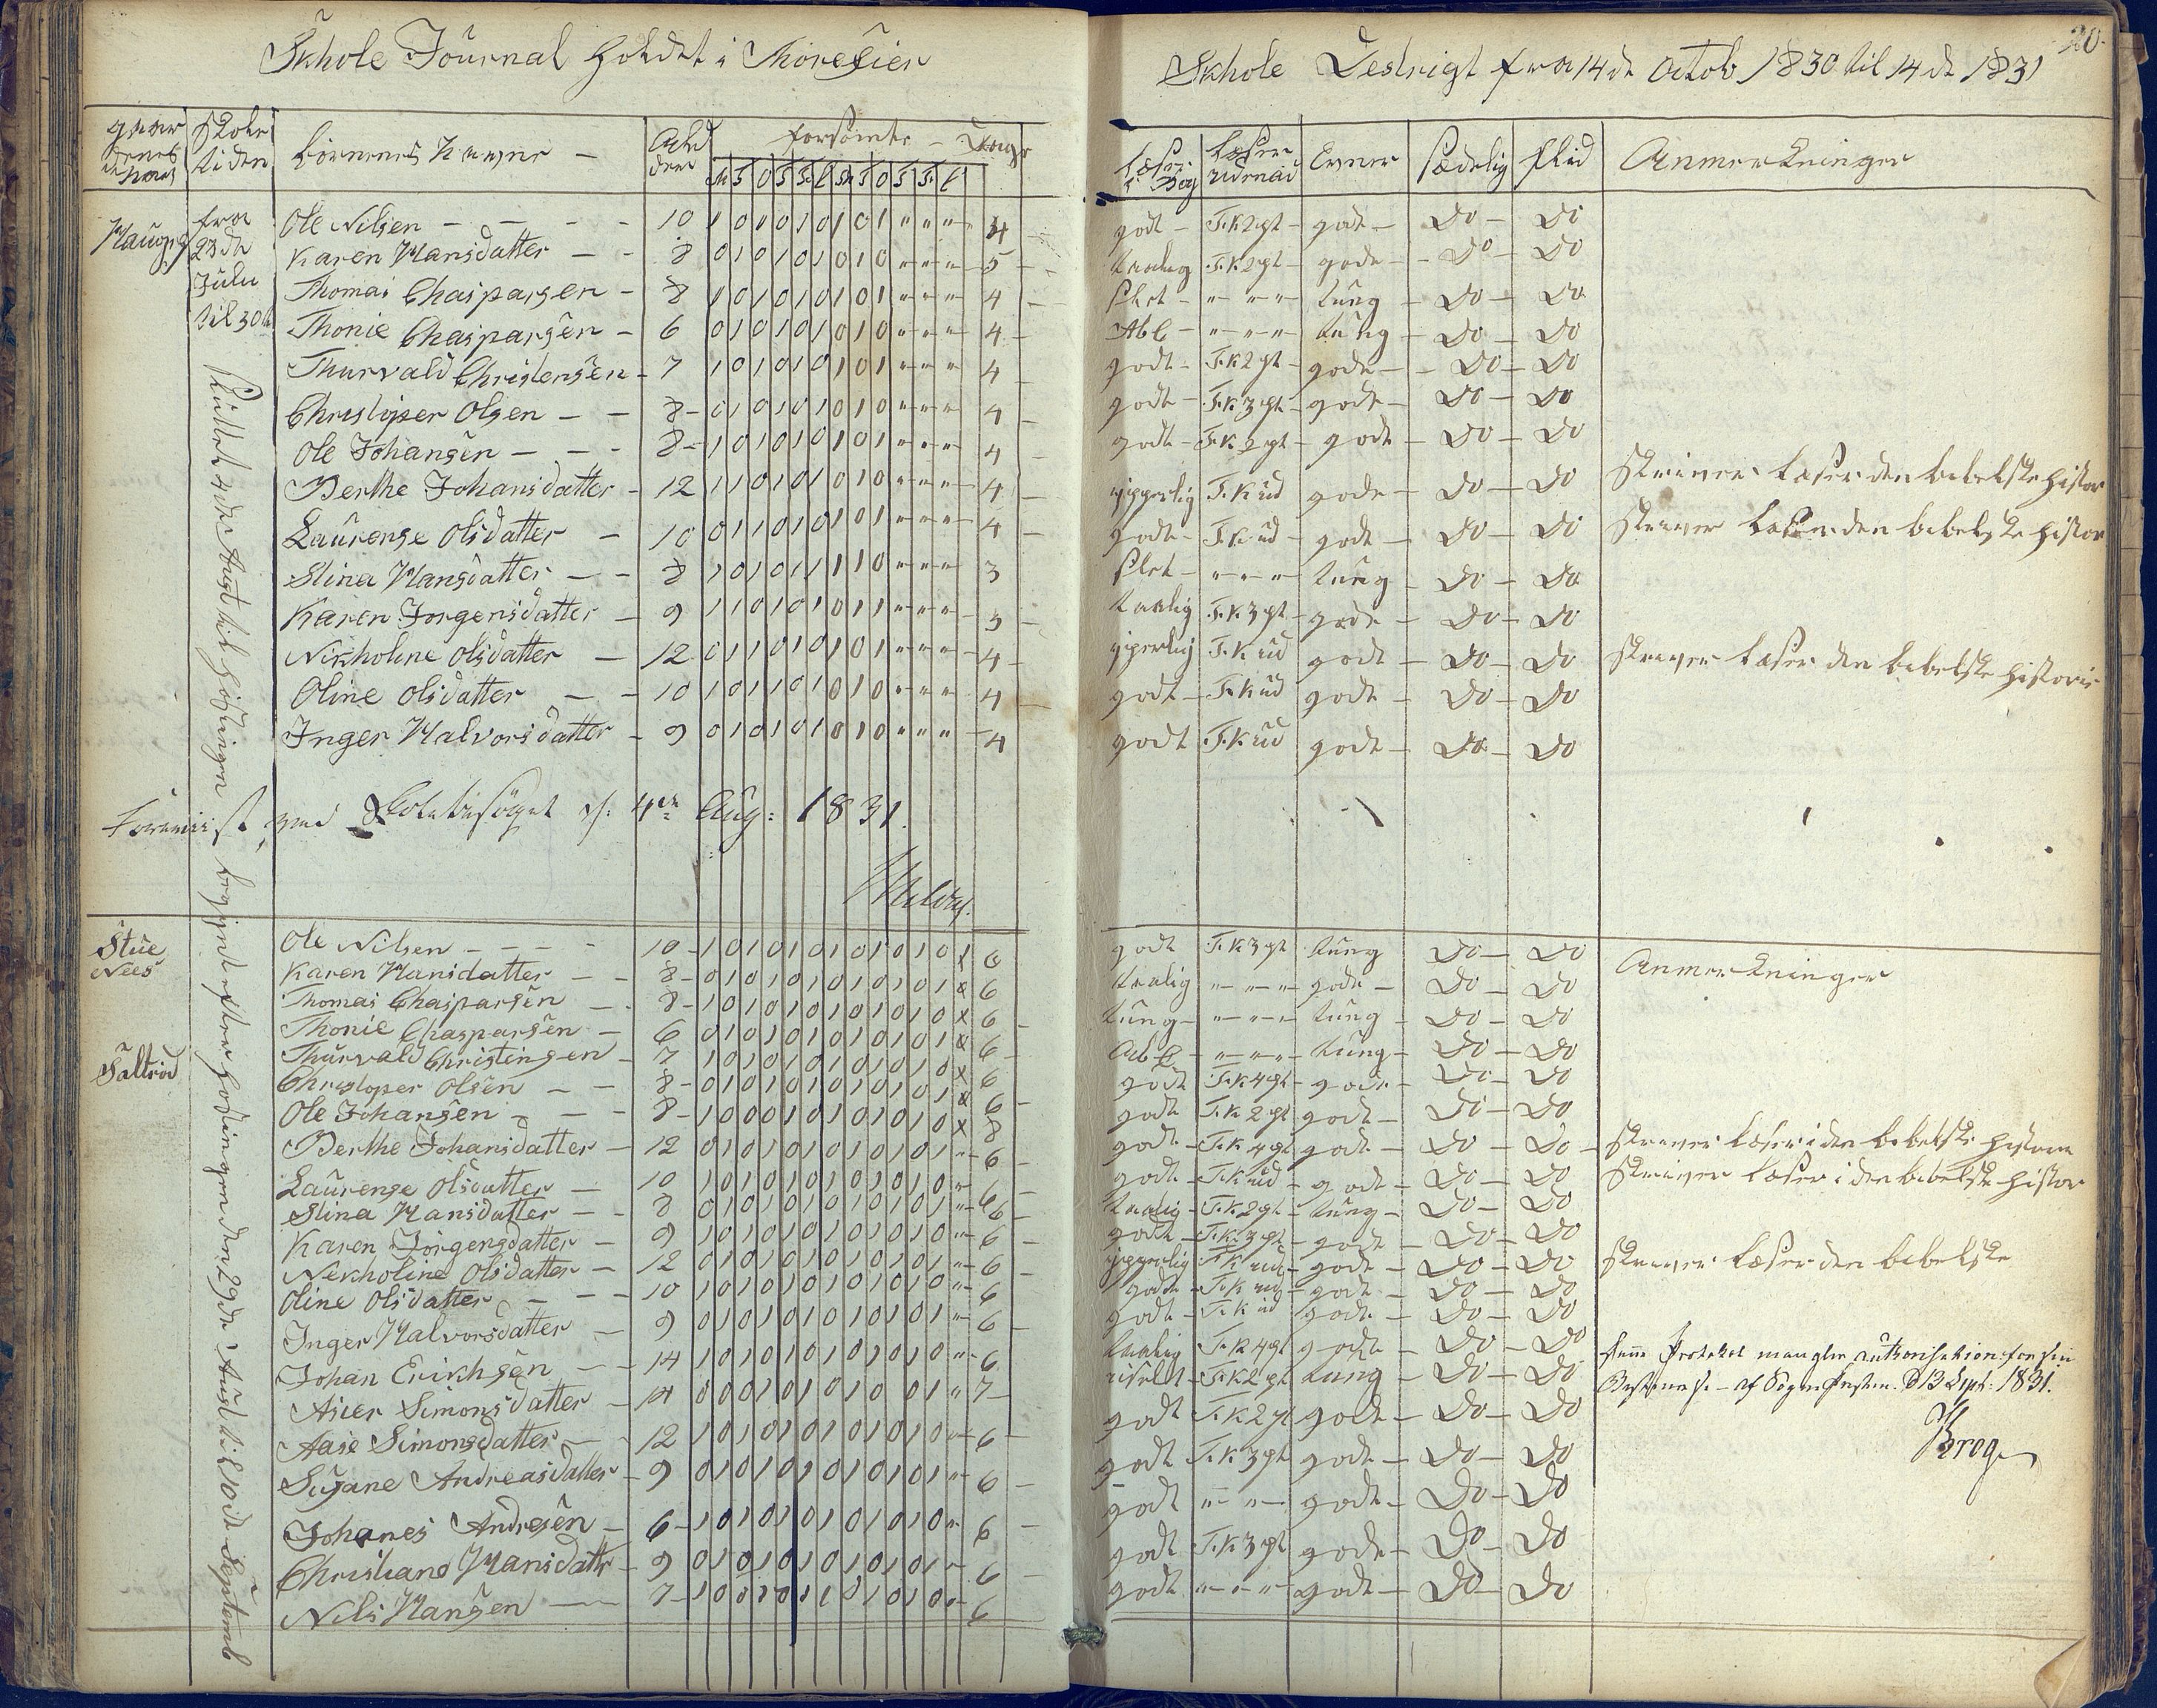 Skhole Journal holdet i Thorefier
Skhole Destrigt fra 14de Octob 1830 til 14de 1831
20.
gaar
dernes
Navn
Skole
tiden
børnenes Navne —
Ald
der
forsømte — Dage
M T O T F L M T O T F L
Læser
i Bog
Læser
udenad
Evner
Sædelig
Flid
Anmerkninger
Haug
fra
23de
Julii
til 30te
Ole Nilsen — 10 1 0 1 0 1 0 1 0 1 " " " 4 godt — F.K 2 pt — gode — Do — Do
Karen Hansdatter — 8 0 1 0 1 0 1 0 1 0 " " " 5 — taalig F.K 2 pt — gode — Do — Do
Thomas Chasparsen — 8 1 0 1 0 1 0 1 0 1 " " " 4 — slet — " " " tung — Do — Do
Thonie Chasparsen — 6 0 1 0 1 0 1 0 1 0 " " " 4 — Abc — " " " tung — Do — Do
Thurvald Christensen — 7 1 0 1 0 1 0 1 0 1 " " " 4 — godt — F.K 2 pt — gode — Do — Do
Christoper Olsen — 8 — 0 1 0 1 0 1 0 1 0 " " " 4 — godt — F.K 3 pt — gode — Do — Do
Ole Johansen — 8 — 1 0 1 0 1 0 1 0 1 " " " 4 — godt — F.K 2 pt — gode — Do — Do
Berthe Johansdatter — 12 1 1 0 1 0 1 0 1 0 " " " 4 — ypperlig F.K ud gode — Do — Do skriver læser den bibelske histor
Laurense Olsdatter — 10 0 1 1 0 1 0 1 0 1 " " " 4 — godt — F.K ud — gode — Do — Do skriver læser den bibelske histor
Stina Hansdatter — 8 1 0 1 0 1 1 1 1 0 " " " 3 slet — " " " tung — Do — Do
Karen Jorgensdatter — 9 1 1 0 1 0 1 0 1 1 " " " 3 — taalig F.K 3 pt — gode — Do — Do
Nikholine Olsdatter — 12 0 1 1 0 1 0 1 0 1 " " " 4 — yperlig F.K ud gode — Do — Do skriver læser den bibelske historie
Oline Olsdatter — 10 1 0 1 1 0 1 0 1 0 " " " 4 — godt — F.K ud gode — Do — Do
Inger Halvorsdatter — 9 0 1 0 1 0 1 0 1 0 " " " 4 godt F.K ud gode — Do — Do
ved Skolebesøget d: 4de Aug: 1831.
Sluttet under August til høstningen
begynder efter høstningen den 29de August til 10de Septemb
Stue
Nees
Saltrød
Ole Nilsen — 10 — 1 0 1 0 1 0 1 0 1 0 1 0 x 6 godt F.K 3 pt tung Do — Do
Anmerkninger
Karen Hansdatter — 8 — 0 1 0 1 0 1 0 1 0 1 0 1 x 6 taalig " " " gode — Do — Do
Thomas Chasparsen — 8 — 1 0 1 0 1 0 1 0 1 0 1 0 x 6 — tung — " " " tung — Do — Do
Thonie Chasparsen — 6 0 1 0 1 0 1 0 1 0 1 0 1 x 6 — Abc — " " " tung — Do — Do
Thurvald Christingsen — 7 1 0 1 0 1 0 1 0 1 0 1 0 x 6 godt F.K 4 pt — gode — Do — Do
Christoper Olsen — 8 — 0 1 0 1 0 1 0 1 0 1 0 1 x 6 — godt F.K 2 pt gode — Do — Do
Ole Johansen — 8 — 1 0 0 0 1 0 1 0 1 0 1 0 x 8 godt — F.K 4 pt gode — Do — Do —
Berthe Johansdatter — 12 0 1 0 1 0 1 0 1 0 1 0 1 " 6 — godt — F.K ud — gode — Do — Do skriver læser i den bibelske historie
Laurense Olsdatter — 10 1 0 1 0 1 0 1 0 1 0 1 0 " 6 — skriver læser i den bibelske histor
Stina Hansdatter — 8 0 1 0 1 0 1 0 1 0 1 0 1 " 6 — taalig — F.K 2 pt — tung — Do — Do
Karen Jörgensdatter — 9 1 0 1 0 1 0 1 0 1 0 1 0 " 6 — godt — F.K 3 pt — gode — Do — Do
Nekholine Olsdatter — 12 0 1 0 1 0 1 0 1 0 1 0 1 " 6 ypperlig F.K ud — gode — Do — Do skriver læser den bibelske
Oline Olsdatter — 10 1 0 1 0 1 0 1 0 1 0 1 0 " 6 godt — F.K ud — gode — Do — Do
Inger Halvorsdatter — 9 0 1 0 1 0 1 0 1 0 1 0 1 " 6 — godt — F.K ud gode — Do — Do
Johan Erichsen — 14 1 0 1 0 1 0 1 0 1 0 1 0 " 6 taalig F.K 4 pt gode — Do — Do
Simonsdatter — 14 0 0 0 1 0 1 0 1 0 0 1 " 7 — F.K 2 pt tung — Do — Do
Aase Simonsdatter — 12 1 0 1 0 1 0 1 0 1 0 1 0 " 6 — godt F.K 2 pt gode — Do — Do
Susane Andreasdatter — 9 0 1 0 1 0 1 0 1 0 1 0 1 " 6 — godt F.K 3 pt gode — Do — Do
Johanes Andresen — 6 — 1 0 1 0 1 0 1 0 1 0 1 0 " 6 — godt " " " gode — Do — Do
Christiane Hansdattr — 9 0 1 0 1 0 1 0 1 0 1 0 1 " 6 — godt F.K 3 pt gode — Do — Do
Nils Hansen — 7 — 1 0 0 1 0 1 0 1 0 1 0 " 6 godt " " " gode — Do — Do
Denne Protokol mangler authorisation for sin
Bestemmelse — af Sogne Presten. D 13 Sept: 1831.
Krog